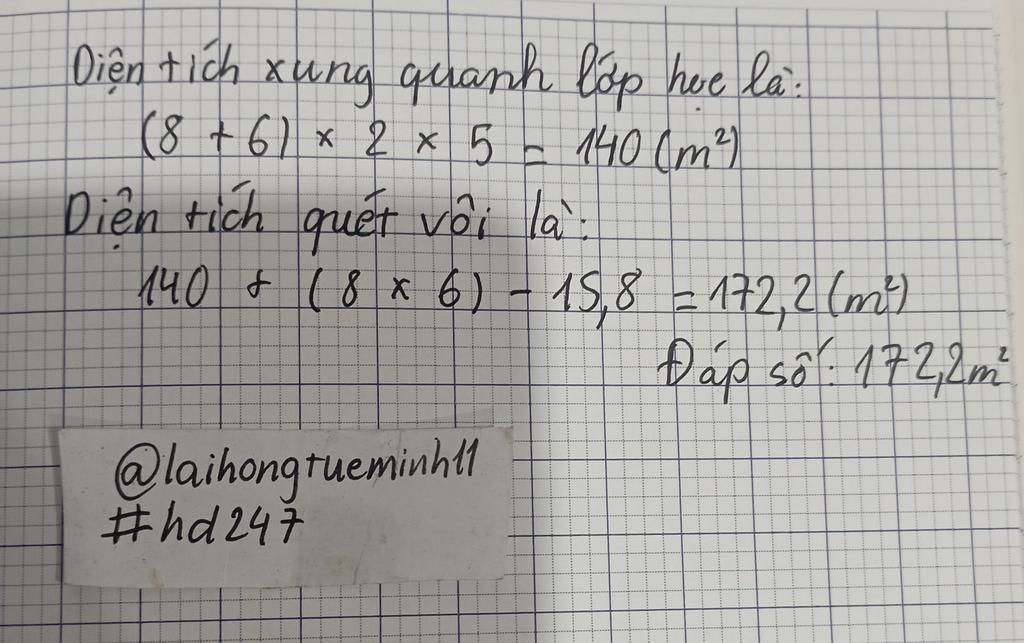 Diện tích xung quanh lớp học là:
(8 + 6) × 2 × 5 = 140 (m²)
Diện tích quét vôi là:
140 + (8 × 6) - 15,8 = 172,2 (m²)
Đáp số: 172,2m²
@laihongtueminh11
#hd247